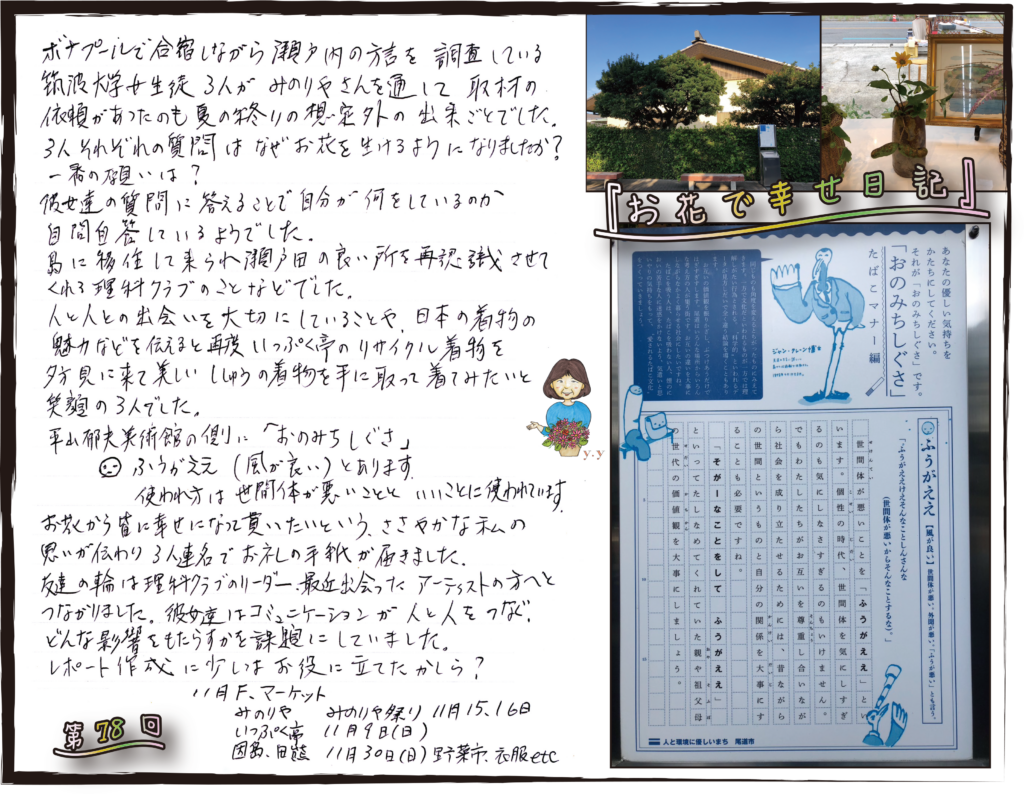 ボナプールで合宿しながら瀬戸内の方言を調査している
筑波大学女生徒3人がみのりやさんを通して取材の
依頼があったのも夏の終りの想定外の出来ごとでした。
3人それぞれの質問はなぜお花を生けるようになりましたか?
一番の願いは?
彼女達の質問に答えることで自分が何をしているのか
自問自答しているようでした。
島に移住して来られ瀬戸田の良い所を再認識させて
くれる理科クラブのことなどでした。
人と人との出会いを大切にしていることや、日本の着物の
魅力などを伝えると再度いっぷく亭のリサイクル着物を
夕方見に来て美しいししゅうの着物を手に取って着てみたいと
笑顔の3人でした。
平山郁夫美術館の側に「おのみちしぐさ」
ふうがええ(風が良い)とあります。
使われ方は世間体が悪いことと いいことに使われています。
お花から皆に幸せになって貰いたいという、ささやかな私の
思いが伝わり3人連名でお礼の手紙が届きました。
友達の輪は理科クラブのリーダー、最近出会ったアーティストの方へと
つながりました。彼女達はコミュニケーションが人と人をつなぐ、
どんな影響をもたらすかを課題にしていました。
レポート作成に少しはお役に立てたかしら?
11月F、マーケット
みのりや みのりや祭り 11月15、16日
いっぷく亭 11月9日(日)
因島、田熊 11月30日(日)野菜市、衣服etc
第78回
y.y
『お花で幸せ日記』
あなたの優しい気持ちを
かたちにしてください。
それが「おのみちしぐさ」です。
「おのみちしぐさ」
たばこマナー編
ジャン・クレーン博士
ふうがええ【風が良い】世間体が悪い、外聞が悪い。「ふうが悪い」とも言う。
「ふうがええけえそんなことしんさんな
(世間体が悪いからそんなことするな)。」
世間体が悪いことを「ふうがええ」とい
います。個性の時代、世間体を気にしすぎ
るのも気にしなさすぎるのもいけません。
でもわたしたちがお互いを尊重し合いなが
ら社会を成り立たせるためには、昔ながら
の世間というものと自分の関係を大事にす
ることも必要ですね。
「そがーなことをして ふうがええ」
といってたしなめてくれていた親や祖父母
の世代の価値観を大事にしましょう。
人と環境に優しいまち 尾道市